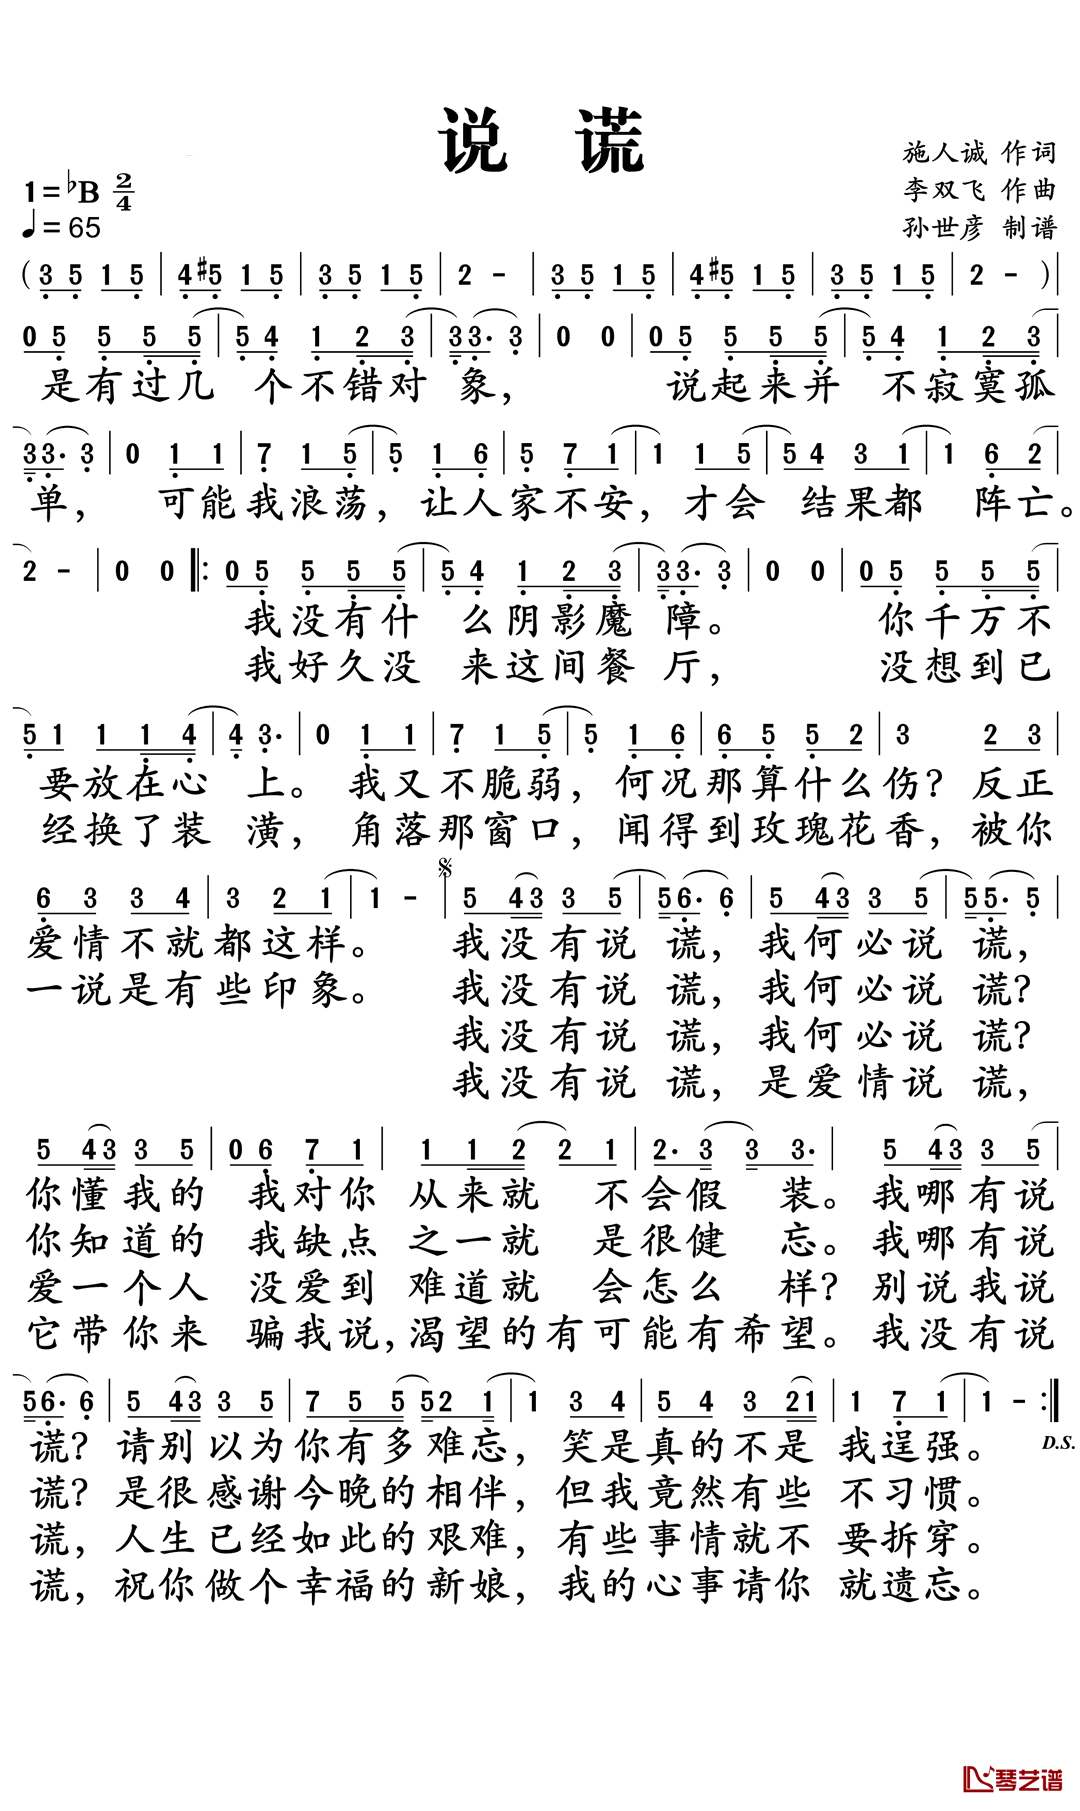 说 谎
施人诚 作词
李双飞 作曲
孙世彦 制谱
1=♭B 2/4
♩=65
(3 5 1 5 | 4 #5 1 5 | 3 5 1 5 | 2 - | 3 5 1 5 | 4 #5 1 5 | 3 5 1 5 | 2 - )|
0 5 5 5 5 | 5 4 1 2 3 | 3 3· 3 | 0 0 | 0 5 5 5 5 | 5 4 1 2 3 |
是有过几 个不错对 象， 说起来并 不寂寞孤
3 3· 3 | 0 1 1 | 7 1 5 | 5 1 6 | 5 7 1 | 1 1 5 | 5 4 3 1 | 1 6 2 |
单， 可能我浪荡，让人家不安，才会 结果都 阵亡。
2 - | 0 0 ‖: 0 5 5 5 5 | 5 4 1 2 3 | 3 3· 3 | 0 0 | 0 5 5 5 5 |
我没有什 么阴影魔 障。 你千万不
我好久没 来这间餐 厅， 没想到已
5 1 1 1 4 | 4 3· | 0 1 1 | 7 1 5 | 5 1 6 | 6 5 5 2 | 3 2 3 |
要放在心 上。 我又不脆弱，何况那算什么伤？反正
经换了装 潢， 角落那窗口，闻得到玫瑰花香，被你
6 3 3 4 | 3 2 1 | 1 - | 5 4 3 3 5 | 5 6· 6 | 5 4 3 3 5 | 5 5· 5 |
爱情不就都这样。 我没有说 谎，我何必说 谎，
一说是有些印象。 我没有说 谎，我何必说 谎？
我没有说 谎，我何必说 谎？
我没有说 谎，是爱情说 谎，
5 4 3 3 5 | 0 6 7 1 | 1 1 2 2 1 | 2· 3 3 3· | 5 4 3 3 5 |
你懂我的 我对你 从来就 不会假 装。我哪有说
你知道的 我缺点 之一就 是很健 忘。我哪有说
爱一个人 没爱到 难道就 会怎么 样？别说我说
它带你来 骗我说，渴望的有可能有希望。我没有说
5 6· 6 | 5 4 3 3 5 | 7 5 5 5 2 1 | 1 3 4 | 5 4 3 2 1 | 1 7 1 | 1 - :‖
谎？请别以为你有多难忘，笑是真的不是 我逞强。
D.S.
谎？是很感谢今晚的相伴，但我竟然有些 不习惯。
谎，人生已经如此的艰难，有些事情就不 要拆穿。
谎，祝你做个幸福的新娘，我的心事请你 就遗忘。
琴艺谱